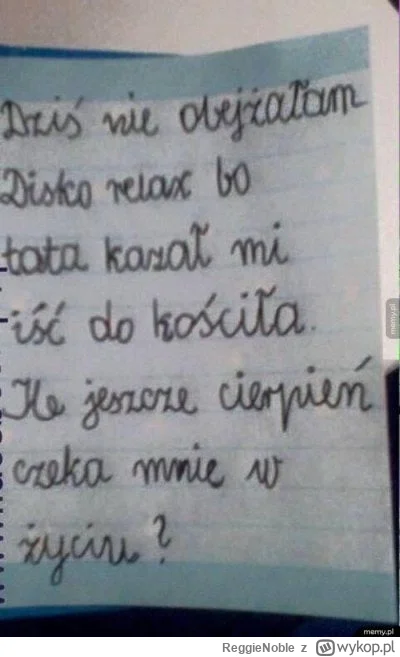 Dziś nie obejżałam
Disko relax bo
tata kazał mi
iść do kościła.
Ile jeszcze cierpień
czeka mnie w
życiu?
memy.pl
memy.pl
ReggieNoble z wykop.pl